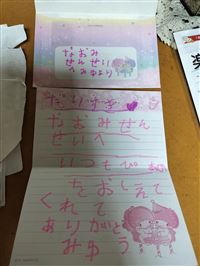 なおみ
せんせい
みゆより
だいすき
なおみせん
せいへ
いつもぴあの
をおしえて
くれて
ありがとう
みゆ